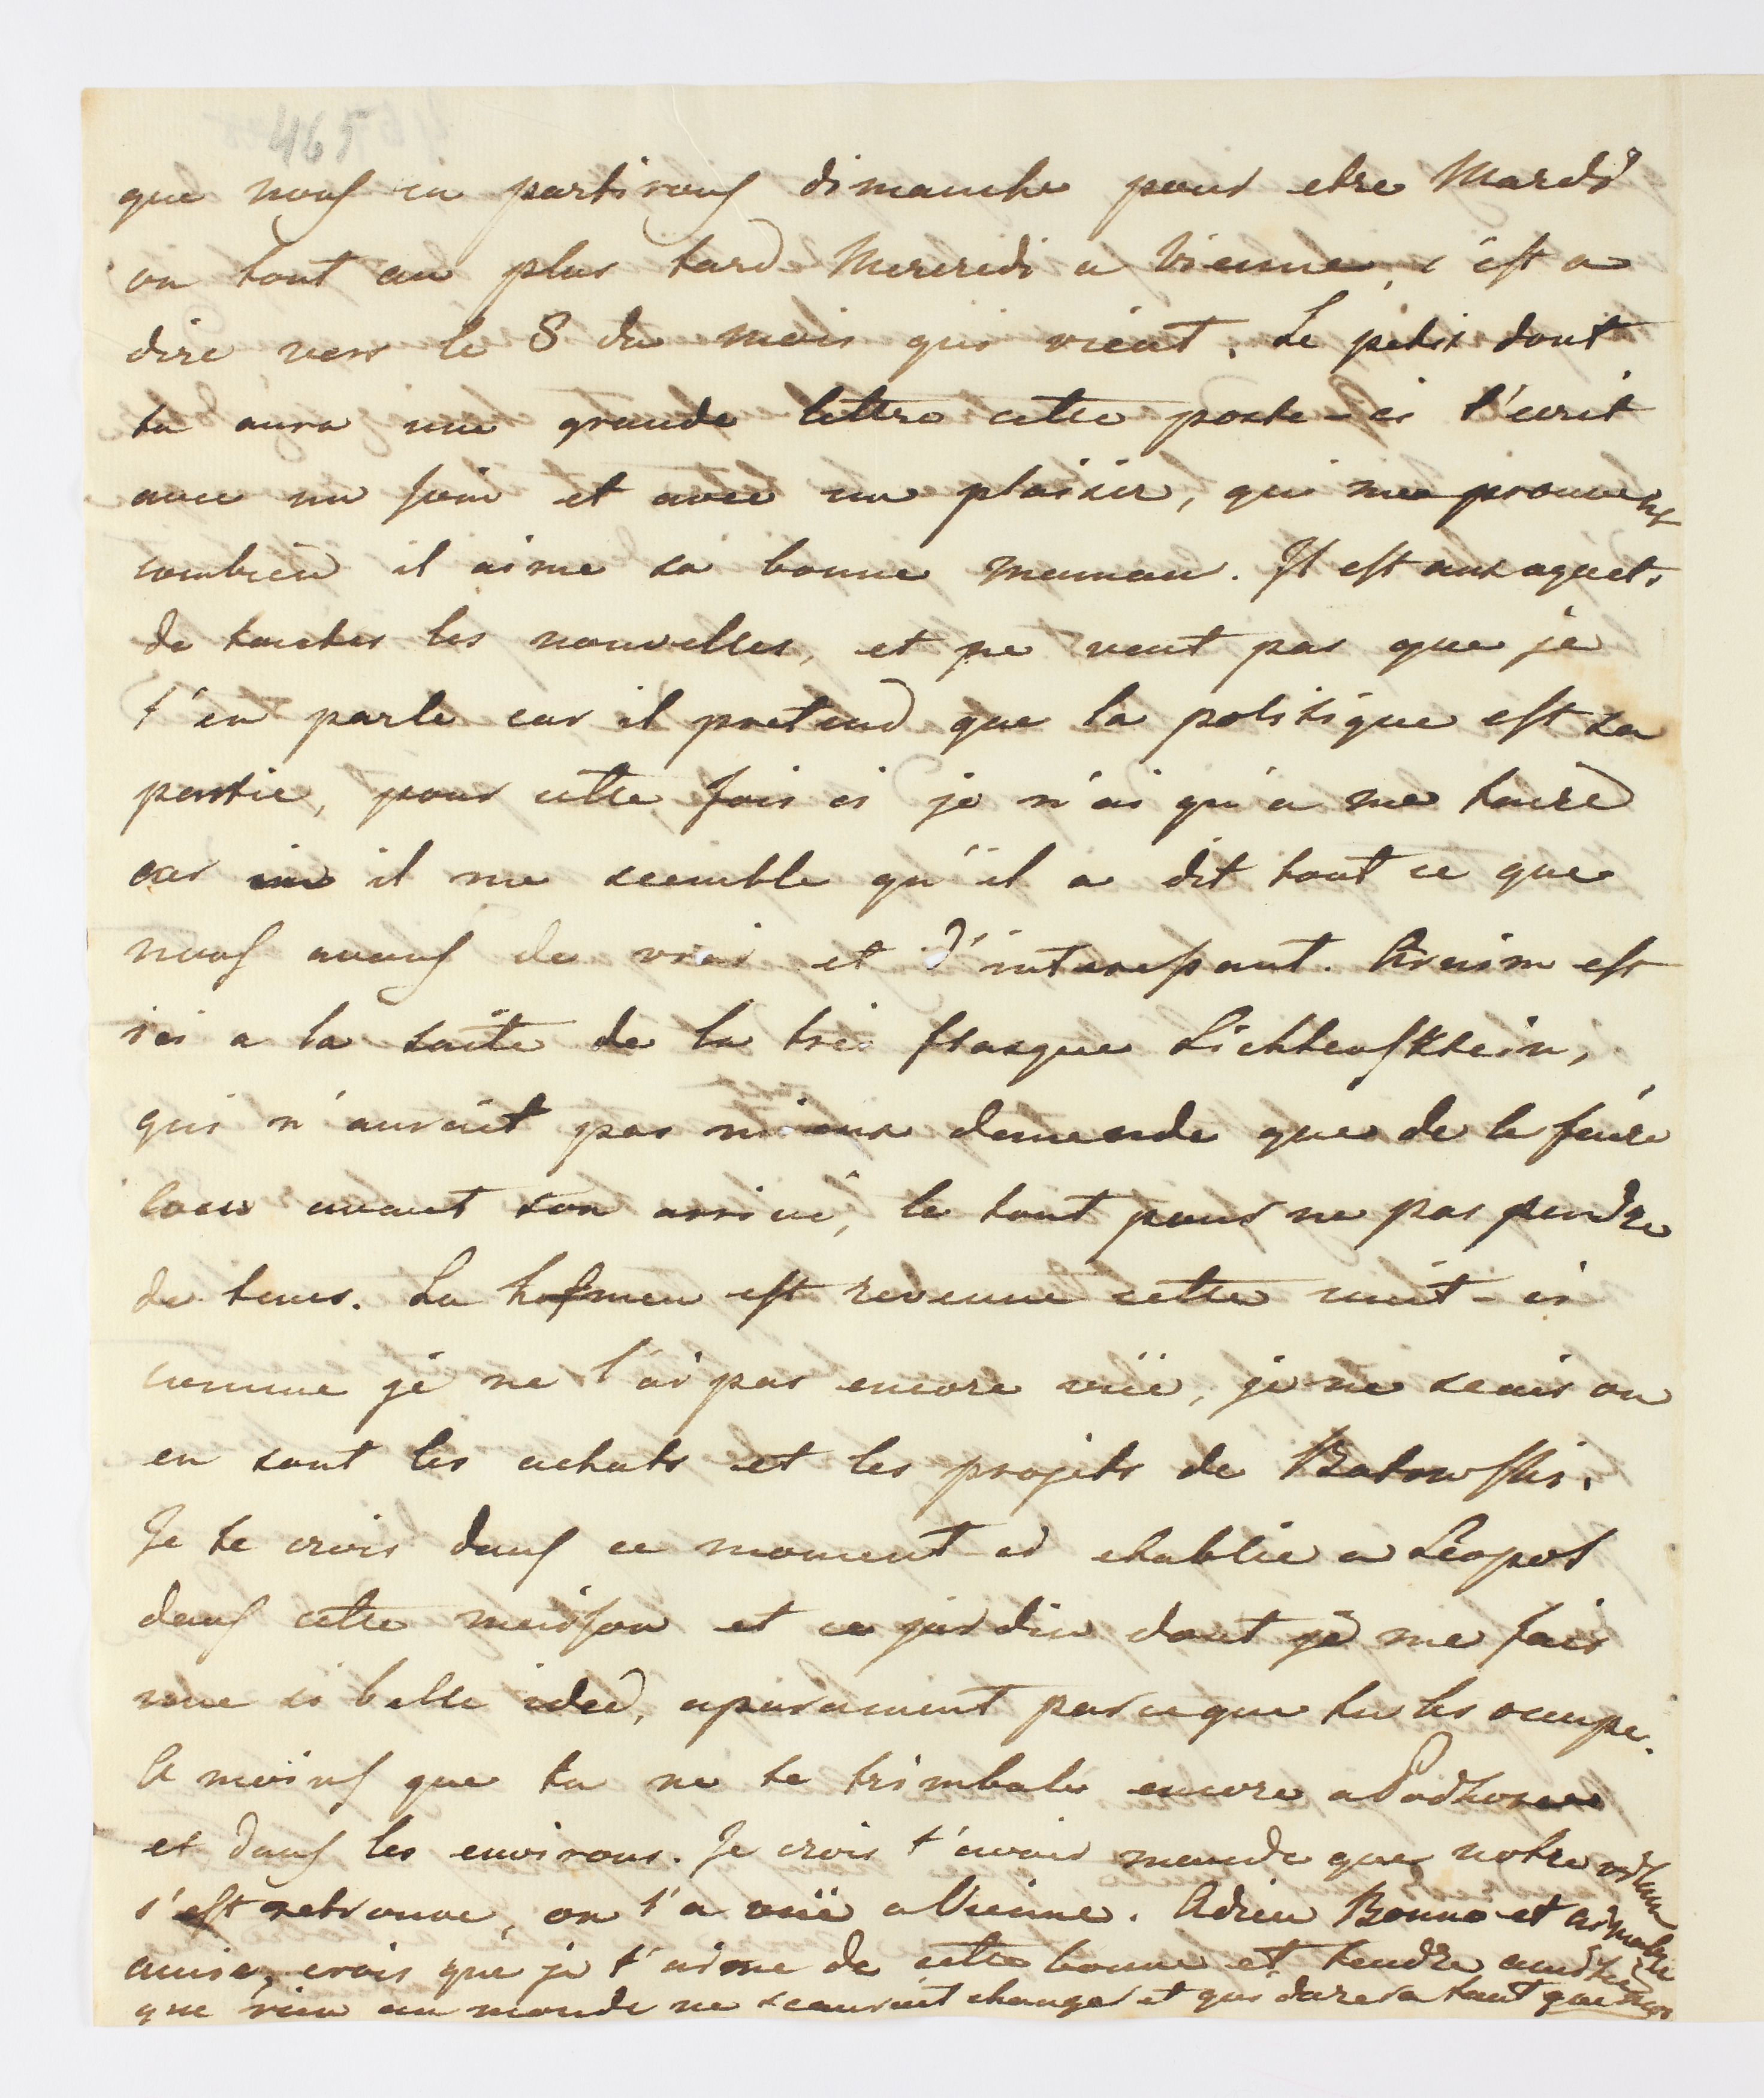 465
que nous en partirons dimanche pour etre Mardi
ou tout au plus tard Mercredi a Vienne, c'est a
dire vers le 8 du mois qui vient. Le petit dont
tu aura une grande lettre cette poste-ci t'ecrit
avec un soin et avec un plaisir, qui me prouvent
combien il aime sa bonne maman. Il est aux aguets
de toutes les nouvelles, et ne veut pas que je
t'en parle car il pretend que la politique est sa
partie, pour cette fois ci je n'ai qu'a me taire
car il me semble qu'il a dit tout ce que
nous avons de vrai et d'interessant. Arnim est
ici a la suite de la tres flasque Lichtenstein,
qui n'auroit pas mieux demande que de le faire
cocu avant son arrivé, le tout pour ne pas perdre
de tems. La est revenue cette nuit-ci
comme je ne l'ai pas encore vüe, je ne scais ou
en sont les achats et les projets de Batowski.
Je te crois dans ce moment ci etablie a Leopol
dans cette maison et ce jardin dont je me fais
une si belle idee, aparament parceque tu les occupe.
A moins que tu ne te trimbale encore a Podhorce
et dans les environs. Je crois t'avoir mande que notre
s'est retrouve, on l'a vüe a Vienne. Adieu Bonne et aimable
amie, crois que je t'aime de cette bonne et tendre amitié
que rien au monde ne scauroit changer et qui durera tant que